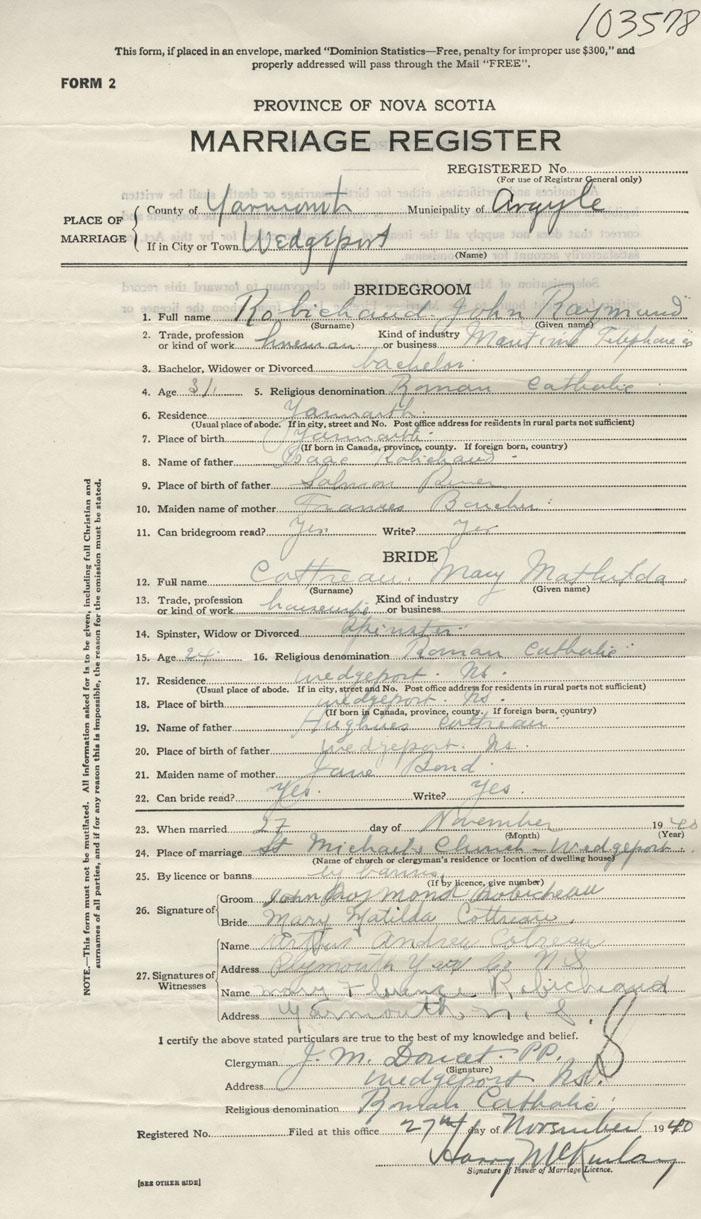 103578
This form, if placed in an envelope, marked "Dominion Statistics—Free, penalty for improper use $300," and
properly addressed will pass through the Mail "FREE".
FORM 2
PROVINCE OF NOVA SCOTIA
MARRIAGE REGISTER
REGISTERED No.
(For use of Registrar General only)
PLACE OF MARRIAGE { County of Yarmouth Municipality of Argyle
If in City or Town Wedgeport
(Name)
BRIDEGROOM
1. Full name Robichaud John Raymund
(Surname) (Given name)
2. Trade, profession or kind of work lineman Kind of industry or business Maritime Telephone
3. Bachelor, Widower or Divorced bachelor
4. Age 31 5. Religious denomination Roman Catholic
6. Residence Yarmouth
(Usual place of abode. If in city, street and No. Post office address for residents in rural parts not sufficient)
7. Place of birth Yarmouth
(If born in Canada, province, county. If foreign born, country)
8. Name of father Isaac Robichaud
9. Place of birth of father Salmon River
10. Maiden name of mother Frances
11. Can bridegroom read? Yes Write? Yes
BRIDE
12. Full name Cottreau Mary Mathilda
(Surname) (Given name)
13. Trade, profession or kind of work housewife Kind of industry or business
14. Spinster, Widow or Divorced Spinster
15. Age 24 16. Religious denomination Roman Catholic
17. Residence Wedgeport Ns.
(Usual place of abode. If in city, street and No. Post office address for residents in rural parts not sufficient)
18. Place of birth Wedgeport Ns.
(If born in Canada, province, county. If foreign born, country)
19. Name of father Hughues Cottreau
20. Place of birth of father Wedgeport Ns.
21. Maiden name of mother Jane Bond
22. Can bride read? Yes. Write? Yes.
23. When married 27 day of November 1940
(Month) (Year)
24. Place of marriage St Michael's Church - Wedgeport
(Name of church or clergyman's residence or location of dwelling house)
25. By licence or banns by banns
(If by licence, give number)
26. Signature of { Groom John Raymond Robicheau
Bride Mary Matilda Cottreau
27. Signatures of Witnesses { Name Andrew
Address Plymouth Yar Co N.S
Name Mary Florence Robicheaud
Address Yarmouth, N. S.
I certify the above stated particulars are true to the best of my knowledge and belief.
Clergyman J. M. Doucet PP.
(Signature)
Address Wedgeport Ns.
Religious denomination Roman Catholic
Registered No. Filed at this office 27th day of November 1940
Harry McKinlay
Signature of Issuer of Marriage Licence.
[SEE OTHER SIDE]
NOTE.—This form must not be mutilated. All information asked for is to be given, including full Christian and
surnames of all parties, and if for any reason this is impossible, the reason for the omission must be stated.